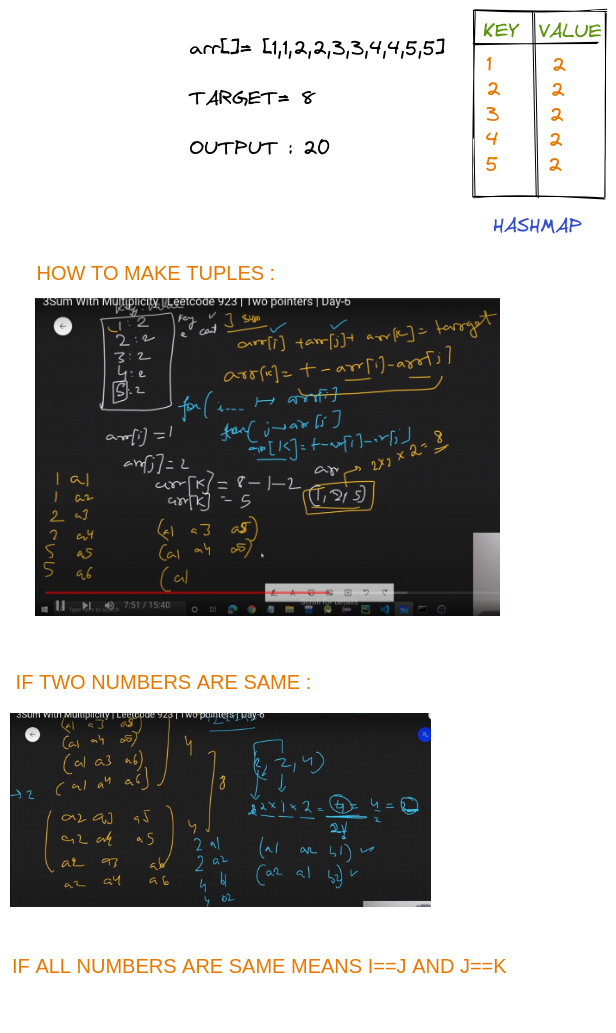 arr[]= [1,1,2,2,3,3,4,4,5,5]
TARGET= 8
OUTPUT : 20
KEY VALUE
1 2
2 2
3 2
4 2
5 2
HASHMAP
HOW TO MAKE TUPLES :
3Sum With Multiplicity | Leetcode 923 | Two pointers | Day-6
1 : 2
2 : 2
3 : 2
4 : 2
5 : 2
3 sum
arr[i] + arr[j] + arr[k] = target
arr[k] = t - arr[i] - arr[j]
for( i... arr[i]
for( j → arr[j]
arr[k] = t - arr[i] - arr[j]
arr[i] = 1
arr[j] = 2
arr[k] = 8 - 1 - 2
arr[k] = 5
ar
2x2x2 = 8
(1, 2, 5)
1 a1
1 a2
2 a3
2 a4
5 a5
5 a6
(a1 a3 a5)
(a1 a4 a5)
(a1
7:51 / 15:40
Scroll for details
IF TWO NUMBERS ARE SAME :
3Sum With Multiplicity | Leetcode 923 | Two pointers | Day-6
(a1 a3 a5)
(a1 a4 a5)
(a1 a3 a6)
(a1 a4 a6)
4
8
4
→ 2
a2 a3 a5
a2 a4 a5
a2 a3 a6
a2 a4 a6
(2, 2, 4)
2x1x2 = 4 = 4/2 = 2
2!
2 a1
2 a2
4 b1
4 b2
(a1 a2 b1)
(a2 a1 b2)
IF ALL NUMBERS ARE SAME MEANS I==J AND J==K